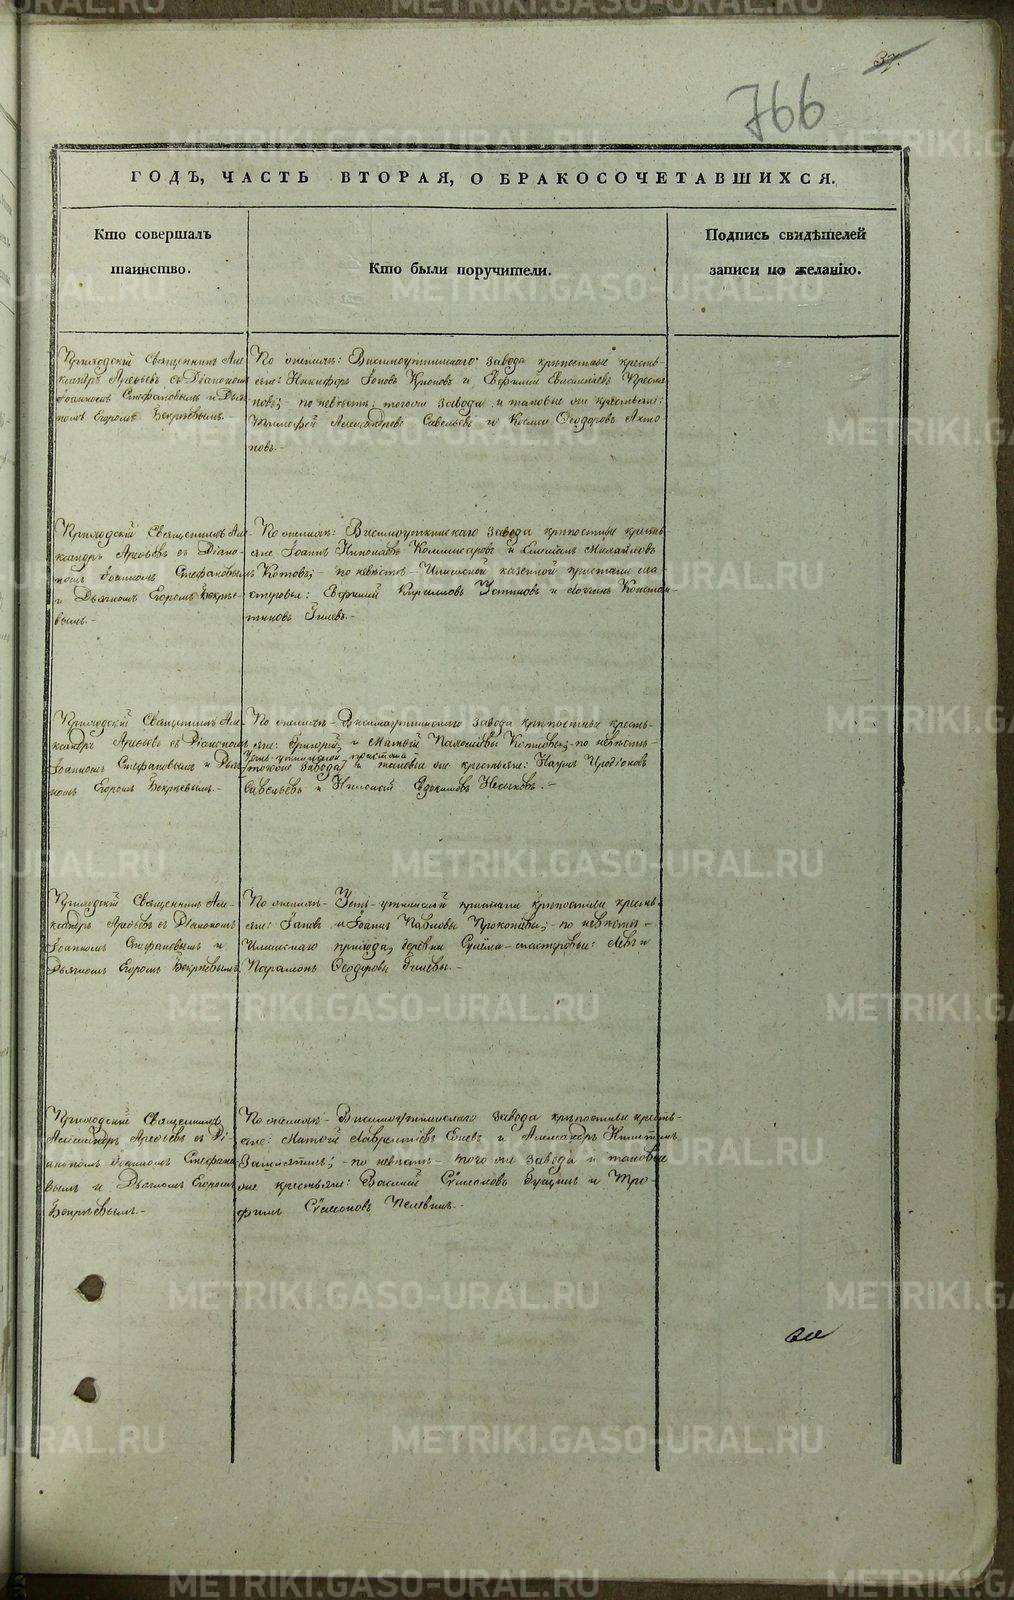 37.
766
ГОДЪ, ЧАСТЬ ВТОРАЯ, О БРАКОСОЧЕТАВШИХСЯ.
Кто совершалъ
таинство.
Кто были поручители.
Подпись свидѣтелей
записи по желанію.
Приходскій Священникъ Але-
ксандръ Арефьевъ съ Діакономъ
Іоанномъ Стефановымъ и Дьяч-
комъ Егоромъ Бекрѣевымъ.-
По женихѣ: Висимоуткинскаго завода крѣпостные кресть-
яне: Никифоръ и Ефимій
новъ; по невѣстѣ: тогоже завода и таковые же крестьяне:
Тимофей Александровъ Савельевъ и Косма Ѳеодоровъ
новъ.-
Приходскій Священникъ Але-
ксандръ Арефьевъ съ Діако-
номъ Іоанномъ Стефановымъ
и Дьячкомъ Егоромъ Бекрѣе-
вымъ.-
По женихѣ: Висимоуткинскаго завода крѣпостные кресть-
яне Іоаннъ Комиссаровъ и Михайловъ
Котовъ; - по невѣстѣ - Илимской казенной пристани ма-
стеровые: Ефимій Кирилловъ Устиновъ и Логинъ Констан-
тиновъ Гилевъ.-
Приходскій Священникъ Але-
ксандръ Арефьевъ съ Діакономъ
Іоанномъ Стефановымъ и Дьяч-
комъ Егоромъ Бекрѣевымъ.-
По женихѣ - Висимоуткинскаго завода крѣпостные кресть-
яне: Григорій и Матвѣй Котовы; - по невѣстѣ -
Усть-уткинской пристани
тогоже завода и таковые же крестьяне: Наумъ Иродіоновъ
Савельевъ и Евдокимовъ
Приходскій Священникъ Але-
ксандръ Арефьевъ съ Діакономъ
Іоанномъ Стефановымъ и
Дьячкомъ Егоромъ Бекрѣевымъ.
По женихѣ - Усть-уткинской пристани крѣпостные кресть-
яне: Іаковъ и Іоаннъ Павловы Прокопьевы; - по невѣстѣ -
Илимскаго прихода, деревни Сулёма - мастеровые: Левъ и
Парамонъ Ѳеодоровы Гилевы.-
Приходскій Священникъ
Александръ Арефьевъ съ Ді-
акономъ Іоанномъ Стефано-
вымъ и Дьячкомъ Егоромъ
Бекрѣевымъ.-
По женихѣ - Висимоуткинскаго завода крѣпостные кресть-
яне: Матвѣй Лаврентіевъ и Александръ Никитинъ
- по невѣстѣ - того же завода и таковые
же крестьяне: Василій Симоновъ и Тро-
фимъ Симоновъ Пелевинъ.-